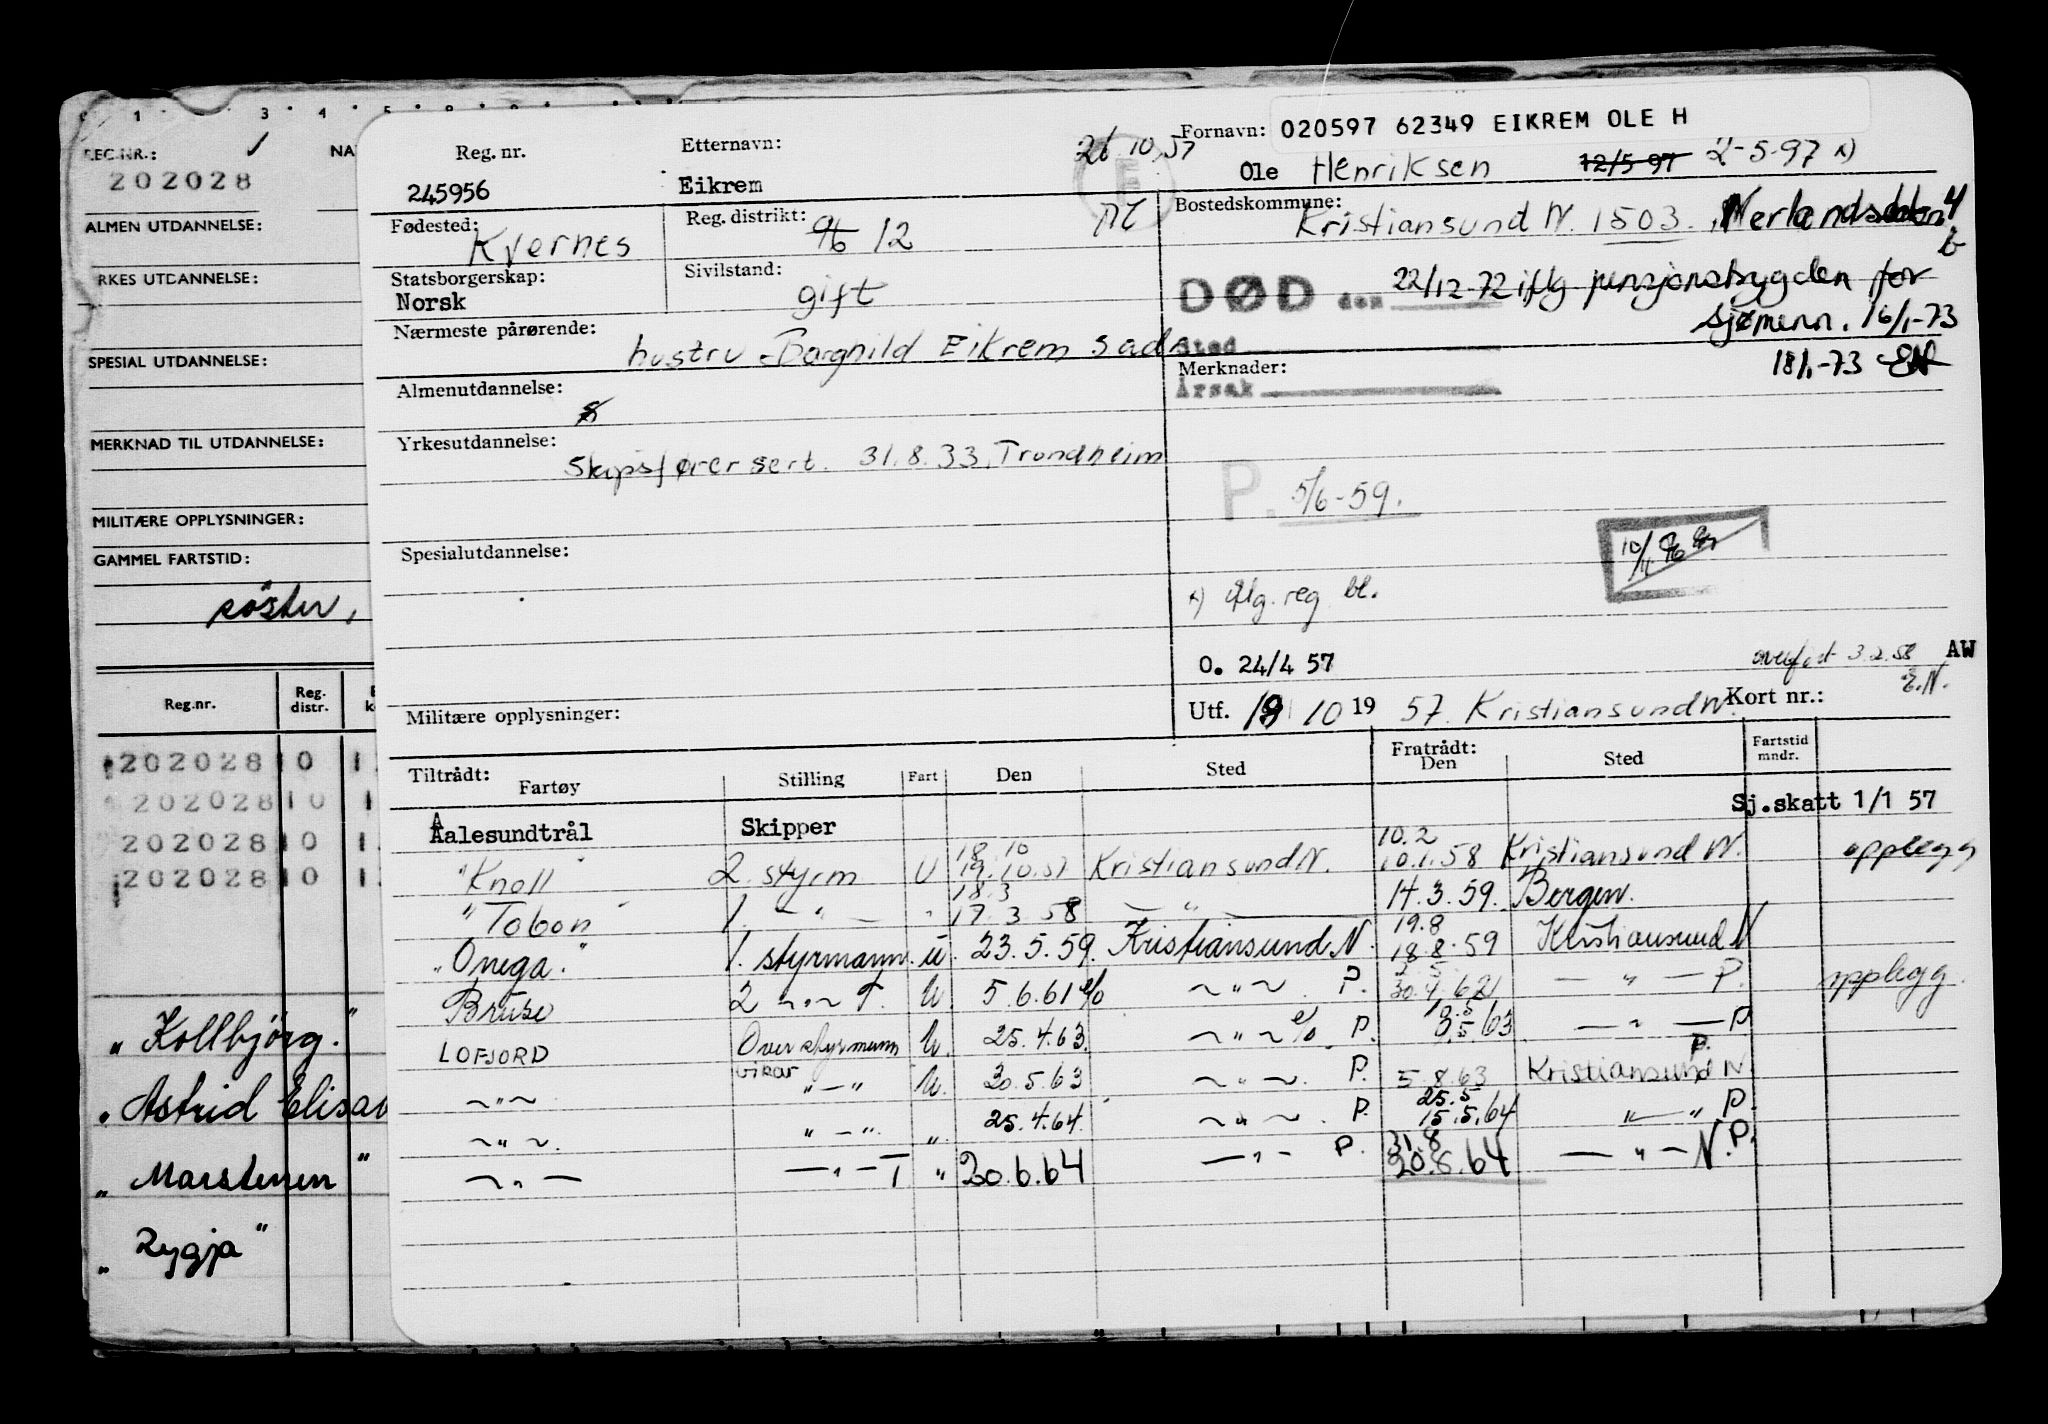 1 3 4 5
REG.NR.: NA
202028
ALMEN UTDANNELSE:
RKES UTDANNELSE:
SPESIAL UTDANNELSE:
MERKNAD TIL UTDANNELSE:
MILITÆRE OPPLYSNINGER:
GAMMEL FARTSTID:
Reg.nr. Reg. distr.
202028 10 1
202028 10 1
202028 10 1
202028 10 1
"Kollbjørg."
"Astrid Elisab
"Marstenen"
"Rygja"
Reg. nr. Etternavn: 26.10.57 Fornavn: 020597 62349 EIKREM OLE H
245956 Eikrem E Ole Henriksen 12/5-97 2-5-97 x)
Fødested: Kvernes Reg. distrikt: 12 Bostedskommune: Kristiansund N. 1503.
Statsborgerskap: Norsk Sivilstand: gift
DØD den 22/12-72 iflg pensjonstrygden for
sjømenn. 16/1-73
Nærmeste pårørende: hustru Borghild Eikrem s ad. Sted
18/1-73
Almenutdannelse: Merknader:
Årsak
Yrkesutdannelse: Skipsfører sert. 31.8.33. Trondheim
P. 5/6-59.
Spesialutdannelse:
x) iflg. reg. bl.
O. 24/4 57 overført 3.2.58 AW
E.N.
Militære opplysninger: Utf. 19/10 1957. Kristiansund N. Kort nr.:
Tiltrådt: Fartøy Stilling Fart Den Sted Fratrådt: Den Sted Fartstid mndr.
Aalesundtrål Skipper Sj.skatt 1/1 57
"Knoll" 2. styrm U 18.10 19.10.57 Kristiansund N. 10.2 10.1.58 Kristiansund N. opplegg
"Tobon" 1. — " — " 18.3 17.3.58 — " — 14.3.59. Bergen.
"Onega." 1. styrmann. u. 23.5.59. Kristiansund N. 19.8 18.8.59 Kristiansund N
Bruse 2 ~ " ~ T. U. 5.6.61 e/o ~ " ~ P. — " — P. opplegg.
LOFJORD Overstyrmann U. 25.4.63. ~ " ~ e/o P. — " — P
~ " ~ vikar " — " U. 30.5.63 ~ " ~ P. 5.8.63 Kristiansund N. P.
~ " ~ " — " " 25.4.64. ~ " ~ P. 25.5 15.5.64 " — " P.
~ " — — " — T " 20.6.64 — " — P. 31.8 20.8.64 — " — N. P.